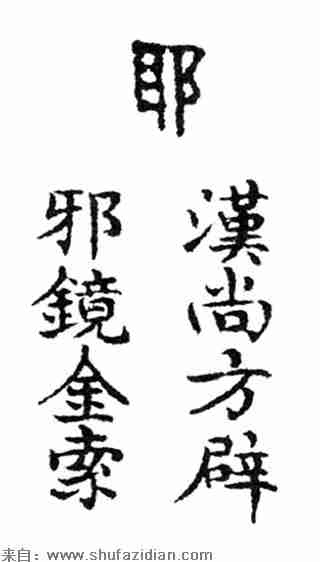 耶
漢尚方辟
邪鏡金索
来自：www.shufazidian.com